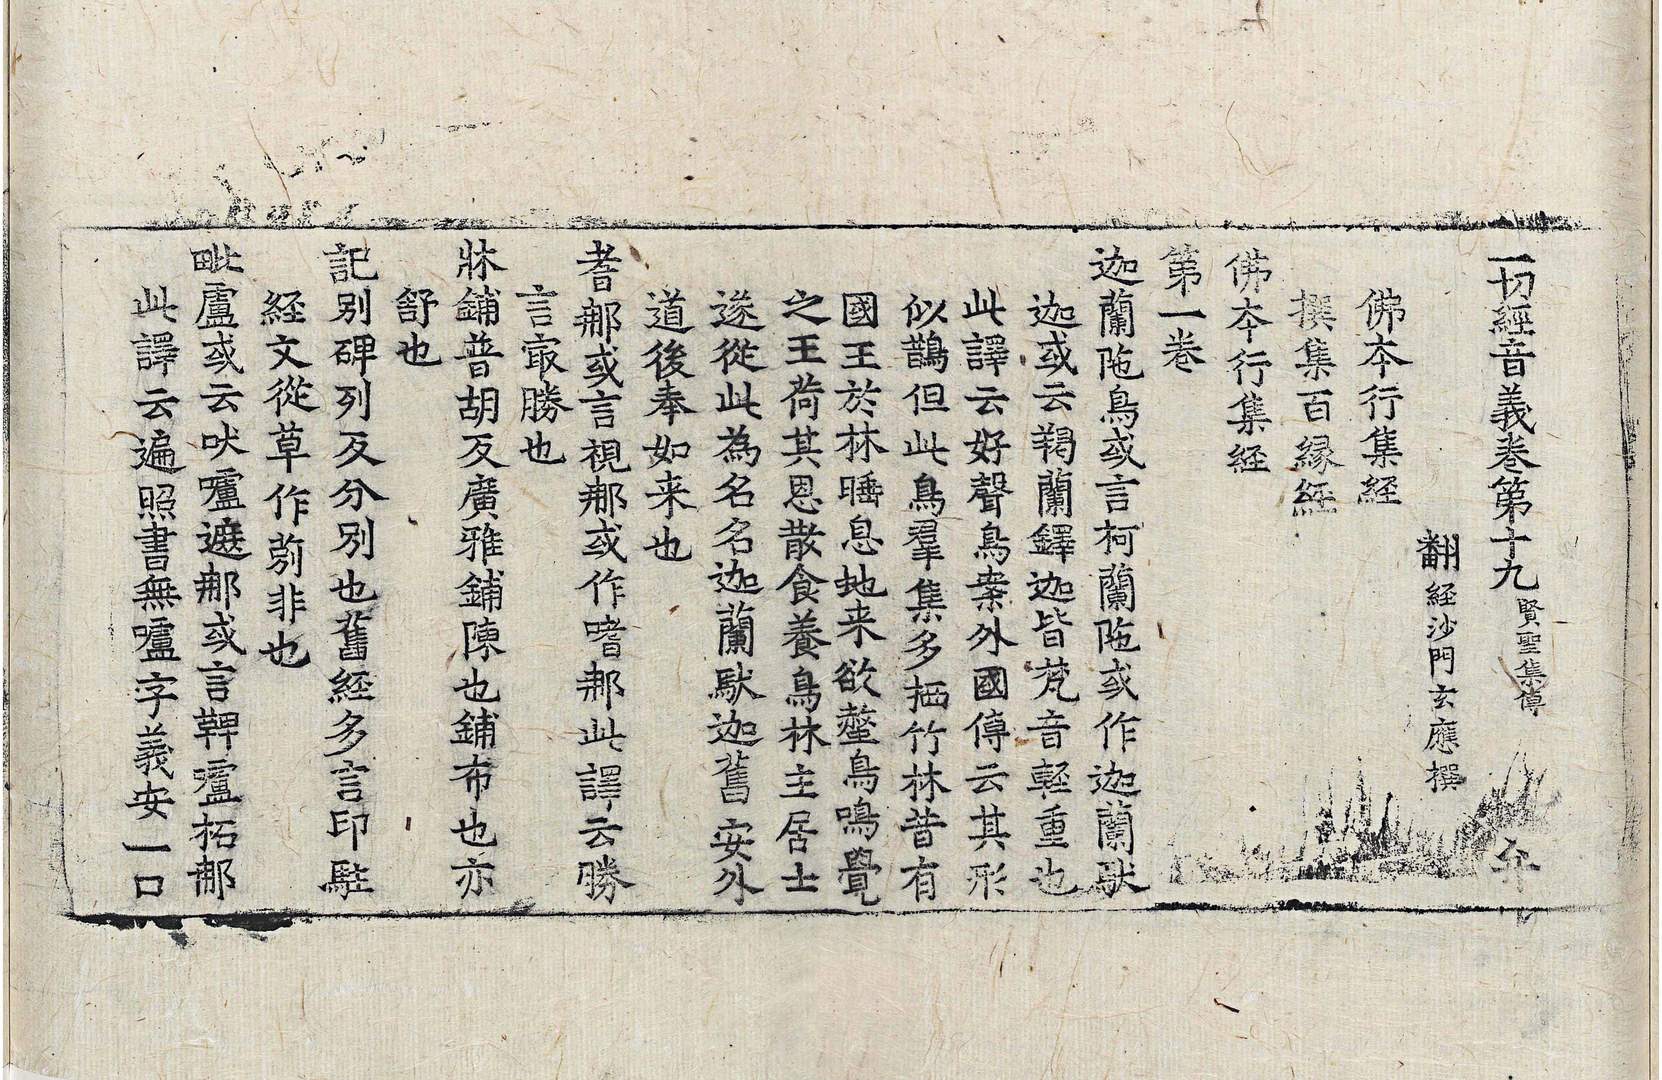 一切經音義卷第十九 賢聖集傳
翻経沙門玄應撰
佛夲行集経
撰集百縁経
佛夲行集経
第一卷
迦蘭陁鳥或言柯蘭陁或作迦蘭馱
迦或云羯蘭鐸迦皆梵音軽重也
此譯云好聲鳥案外國傳云其形
似鵲但此鳥羣集多栖竹林昔有
國王於林睡息虵来欲螫鳥鳴覺
之王荷其恩散食養鳥林主居士
遂從此為名名迦蘭馱迦舊安外
道後奉如来也
耆那或言視那或作嗜那此譯云勝
言㝡勝也
牀鋪普胡反廣雅鋪陳也鋪布也亦
舒也
記別碑列反分別也舊経多言印駐
経文從草作莂非也
毗盧或云吠嚧遮那或言鞞嚧柘那
此譯云遍照書無嚧字義安一口